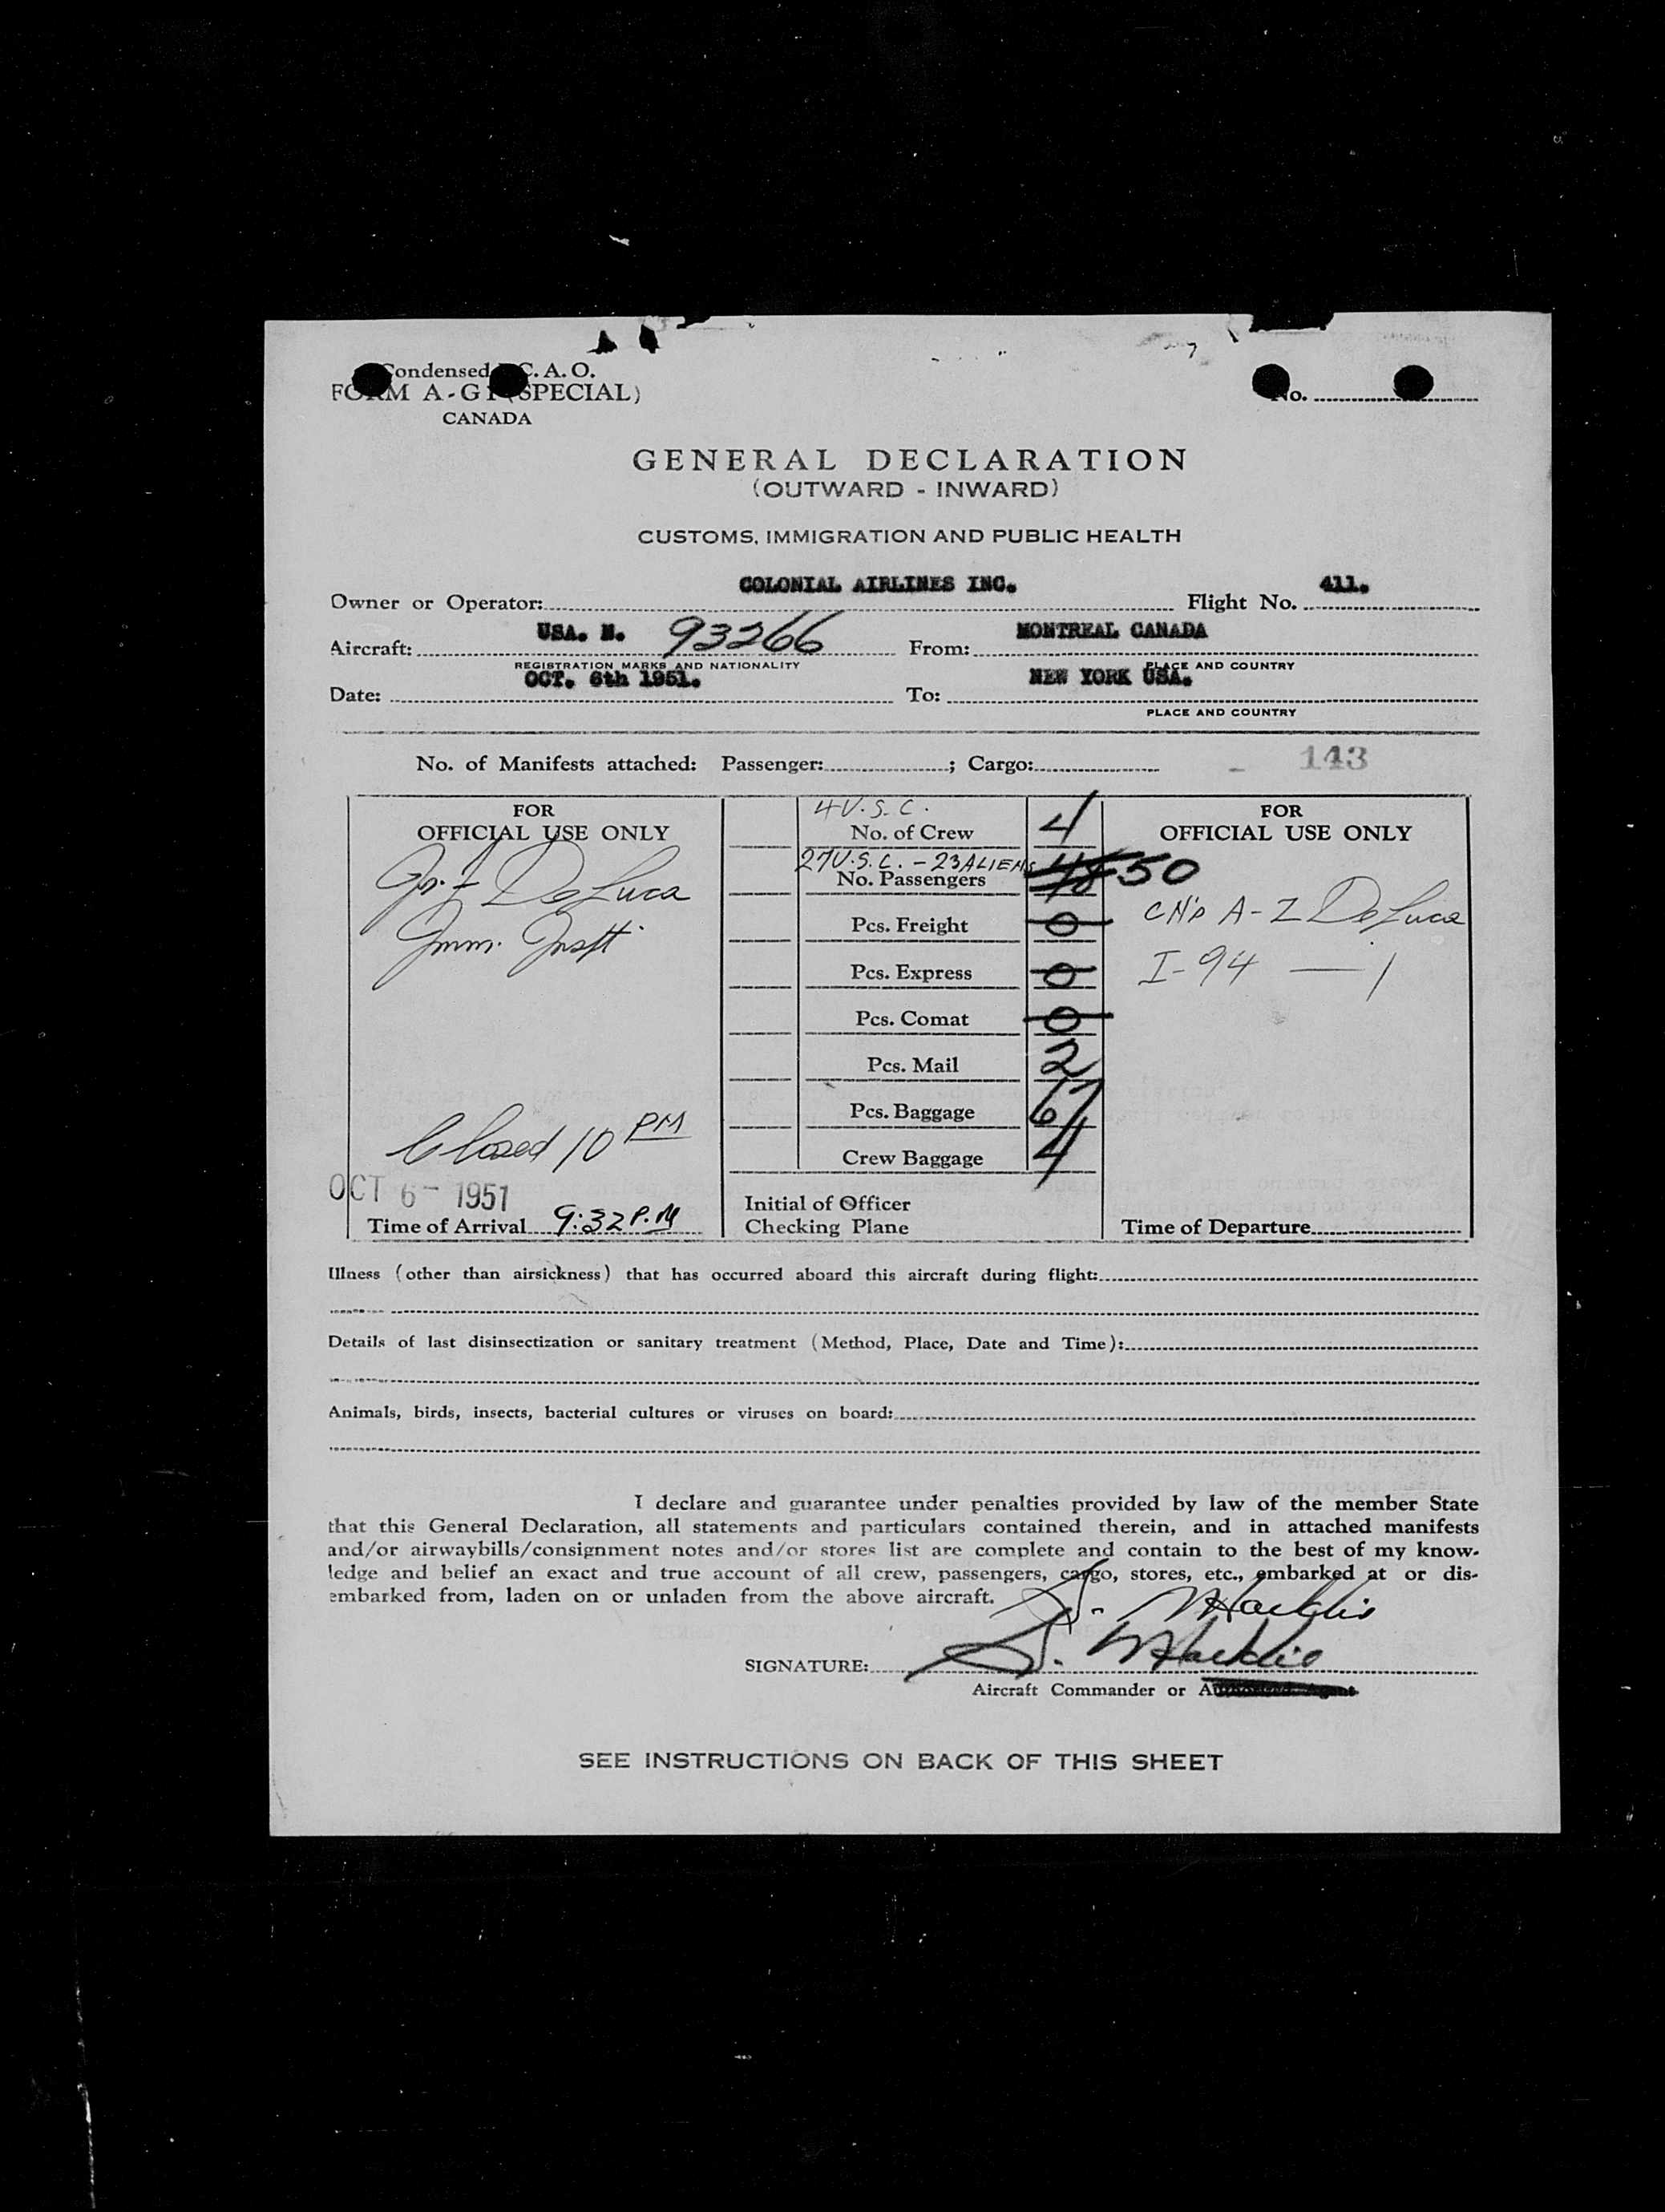 Condensed C. A. O.
FORM A-G1 (SPECIAL)
CANADA
No.
GENERAL DECLARATION
(OUTWARD - INWARD)
CUSTOMS, IMMIGRATION AND PUBLIC HEALTH
Owner or Operator: COLONIAL AIRLINES INC. Flight No. 411.
Aircraft: USA. N. 93266 From: MONTREAL CANADA
REGISTRATION MARKS AND NATIONALITY PLACE AND COUNTRY
Date: OCT. 6th 1951. To: NEW YORK USA.
PLACE AND COUNTRY
No. of Manifests attached: Passenger: ; Cargo: 143
FOR
OFFICIAL USE ONLY
DeLuca
Imm. Insptr
Closed 10 PM
OCT 6 - 1951
Time of Arrival 9:32 P.M
4 U.S.C.
No. of Crew 4
27 U.S.C. - 23 ALIENS
No. Passengers 48 50
Pcs. Freight 0
Pcs. Express 0
Pcs. Comat 0
Pcs. Mail 2
Pcs. Baggage 67
Crew Baggage 4
Initial of Officer
Checking Plane
FOR
OFFICIAL USE ONLY
A-Z DeLuca
I-94 — 1
Time of Departure
Illness (other than airsickness) that has occurred aboard this aircraft during flight:
Details of last disinsectization or sanitary treatment (Method, Place, Date and Time):
Animals, birds, insects, bacterial cultures or viruses on board:
I declare and guarantee under penalties provided by law of the member State
that this General Declaration, all statements and particulars contained therein, and in attached manifests
and/or airwaybills/consignment notes and/or stores list are complete and contain to the best of my know-
ledge and belief an exact and true account of all crew, passengers, cargo, stores, etc., embarked at or dis-
embarked from, laden on or unladen from the above aircraft.
SIGNATURE:
Aircraft Commander or Authorized Agent
SEE INSTRUCTIONS ON BACK OF THIS SHEET